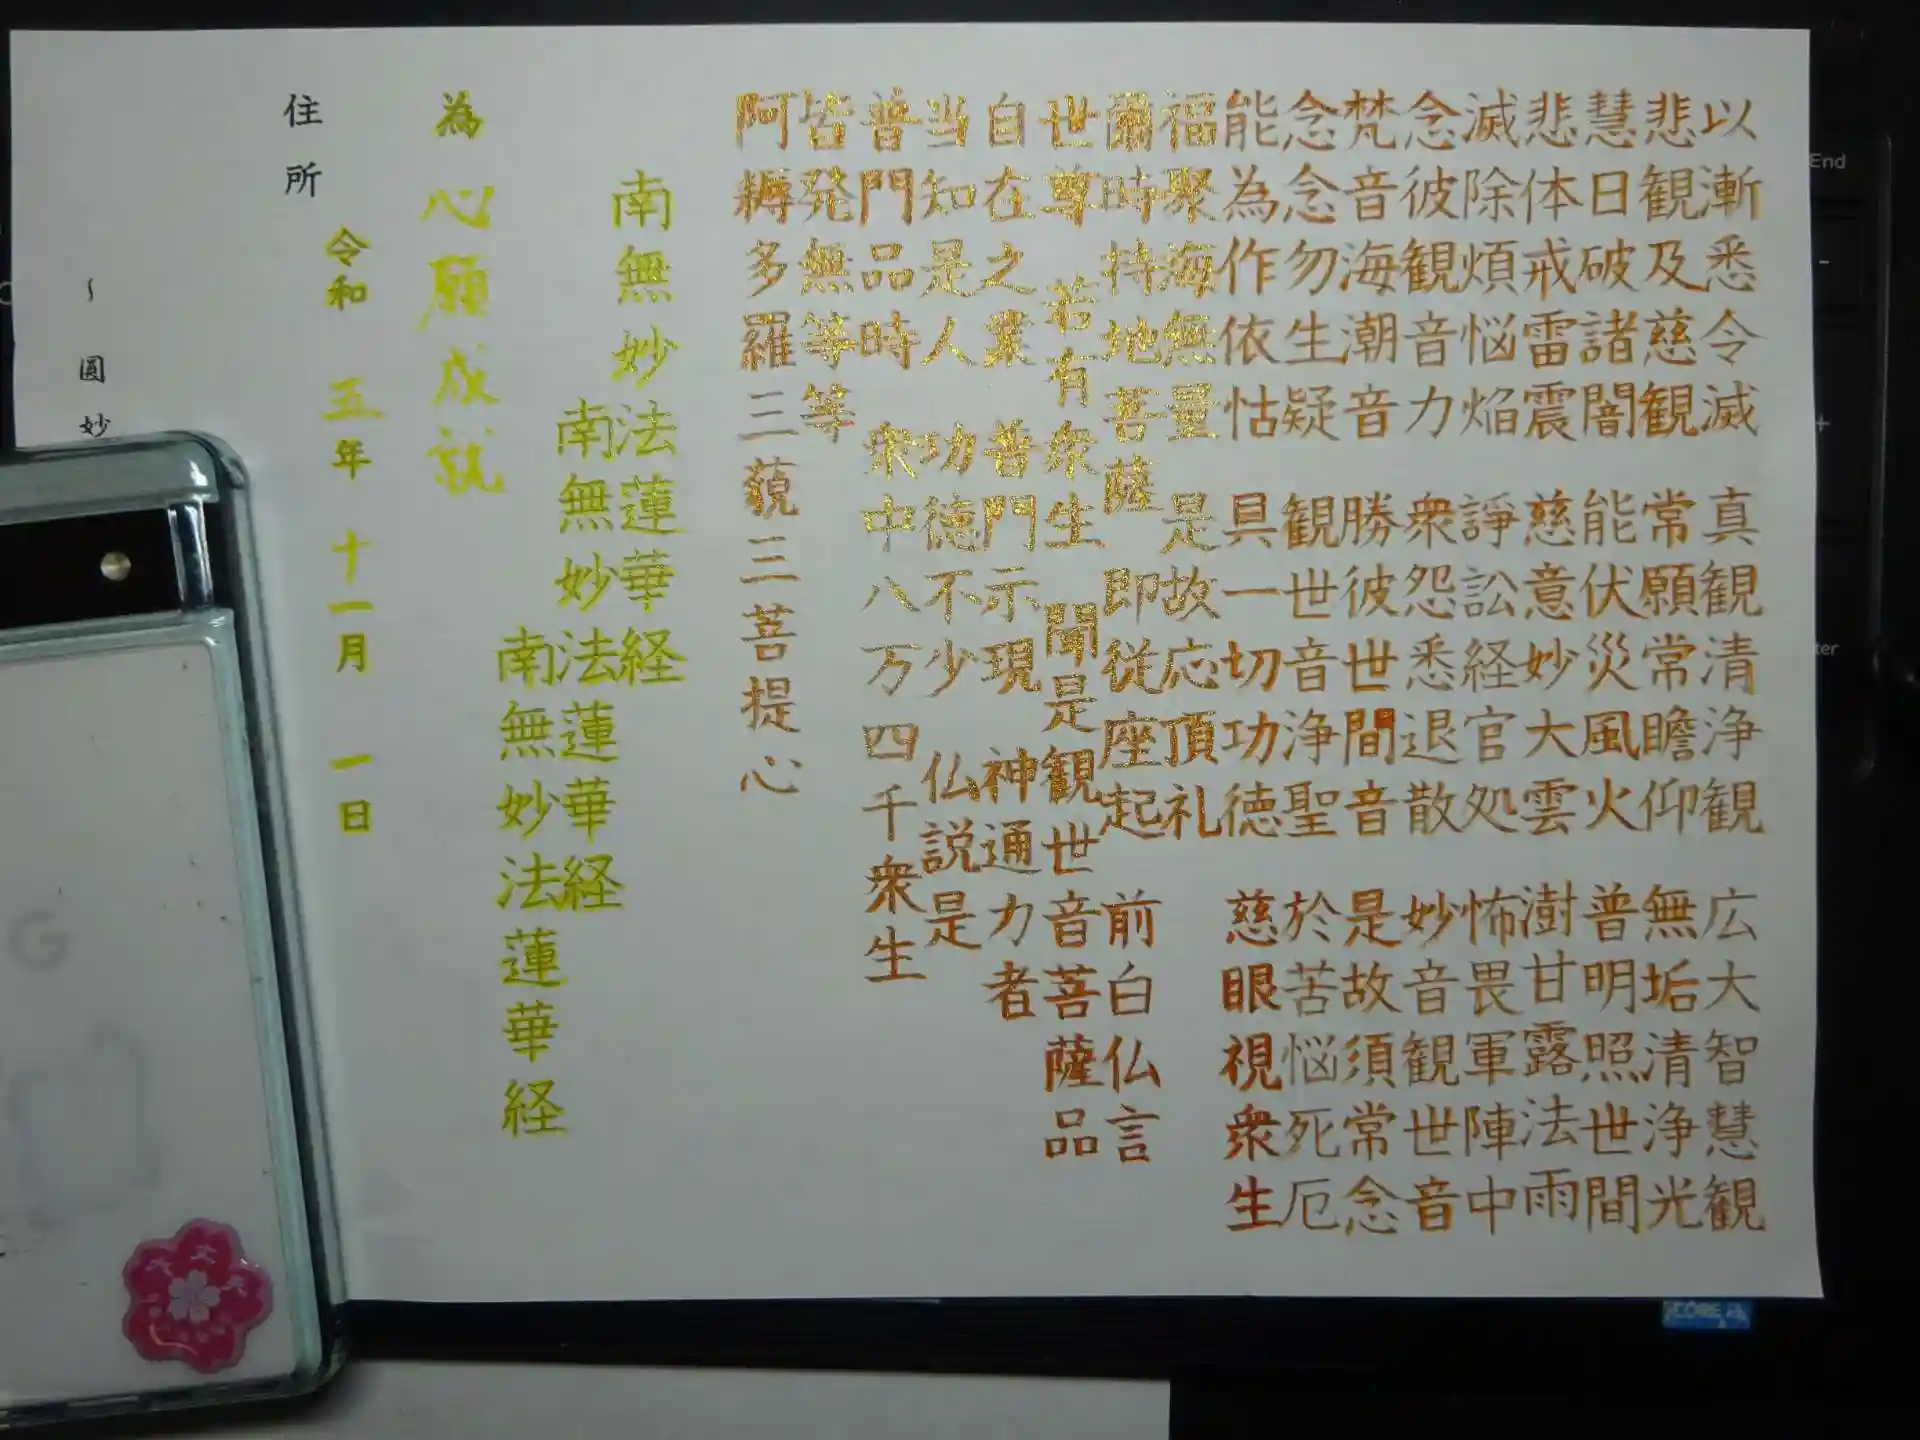 以漸悉令滅　真観清浄観　広大智慧観
悲観及慈観　常願常瞻仰　無垢清浄光
慧日破諸闇　能伏災風火　普明照世間
悲体戒雷震　慈意妙大雲　澍甘露法雨
滅除煩悩焔　諍訟経官処　怖畏軍陣中
念彼観音力　衆怨悉退散　妙音観世音
梵音海潮音　勝彼世間音　是故須常念
念念勿生疑　観世音浄聖　於苦悩死厄
能為作依怙　具一切功徳　慈眼視衆生
福聚海無量　是故応頂礼
爾時持地菩薩　即從座起　前白仏言
世尊　若有衆生　聞是観世音菩薩品
自在之業　普門示現　神通力者
当知是人　功徳不少　仏説是
普門品時　衆中八万四千衆生
皆発無等等
阿耨多羅三藐三菩提心
南無妙法蓮華経
南無妙法蓮華経
南無妙法蓮華経
為　心願成就
令和　五年　十一月　一日
住所
～圓妙
End
-
+
ter
G
CORE